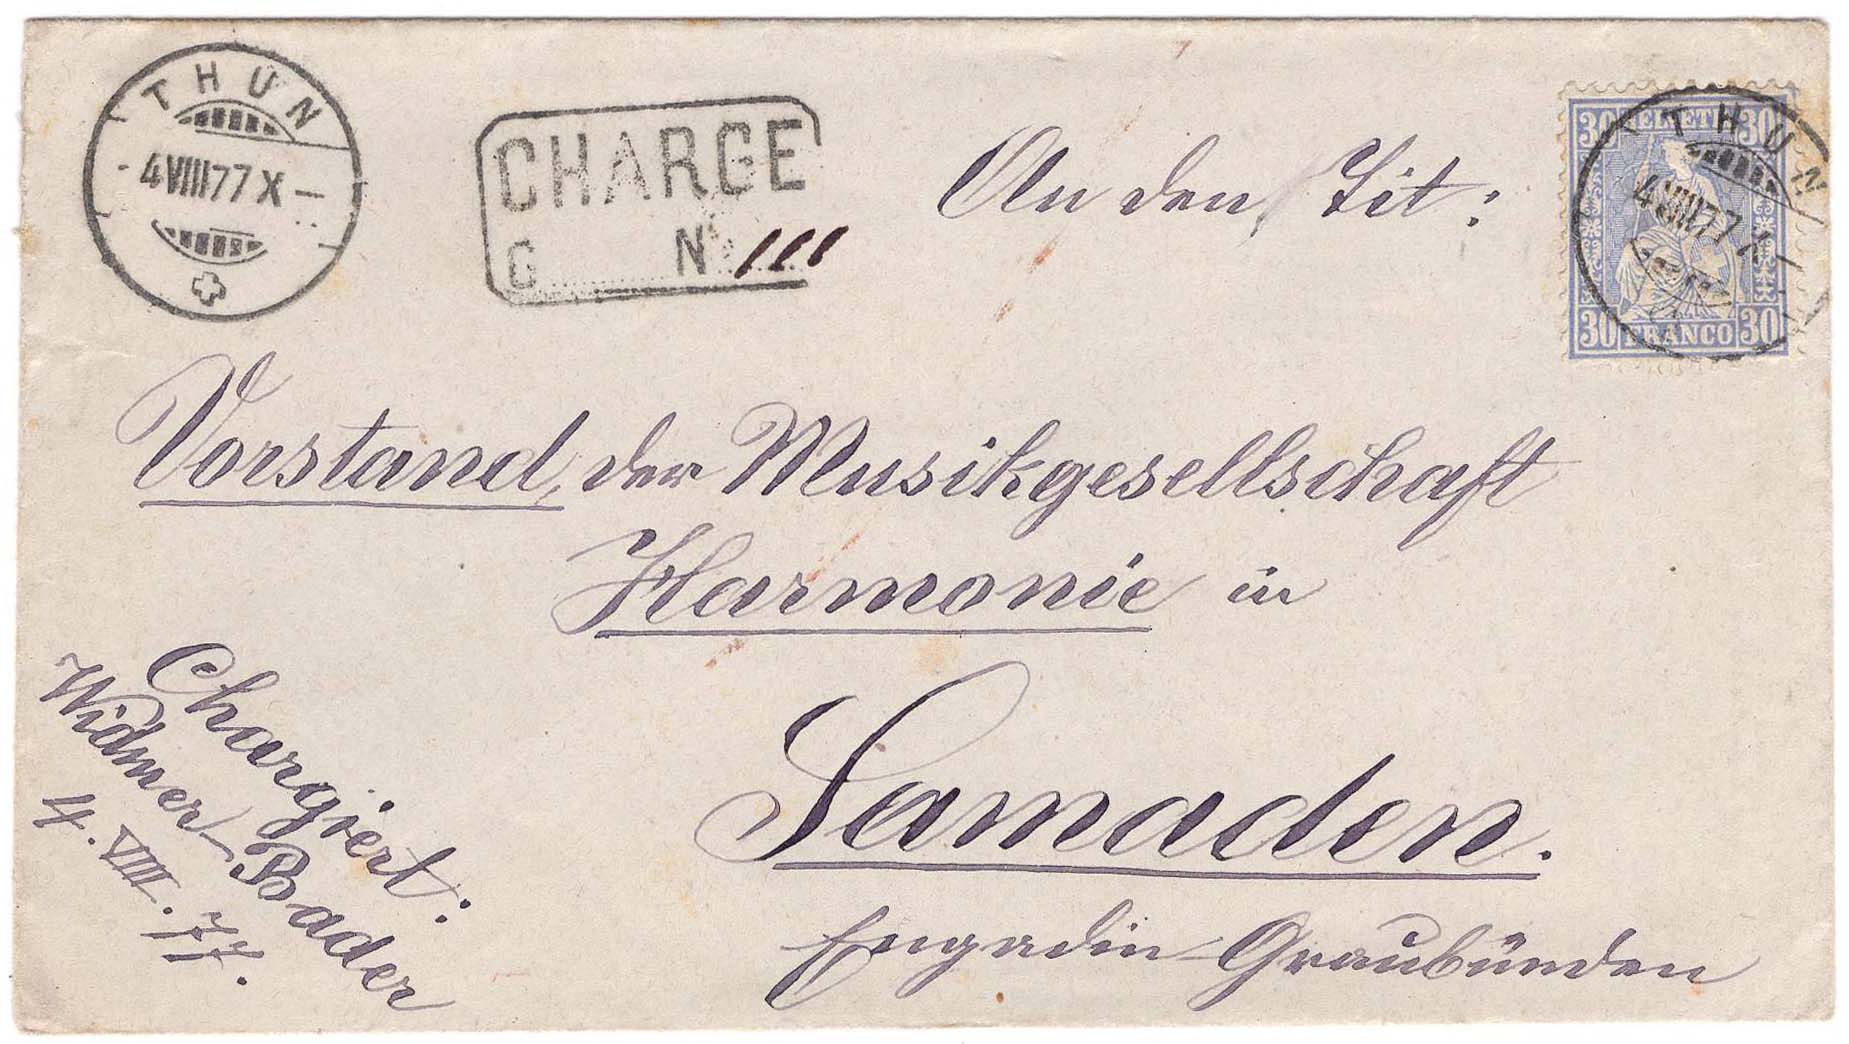 THUN
4 VIII 77 X
CHARGE
C N 111
An den Tit:
30 HELVETIA 30
THUN
4 VIII 77 X
30 FRANCO 30
Vorstand der Musikgesellschaft
Harmonie in
Samaden.
Engadin-Graubünden
Chargiert:
Widmer-Bader
4. VIII. 77.